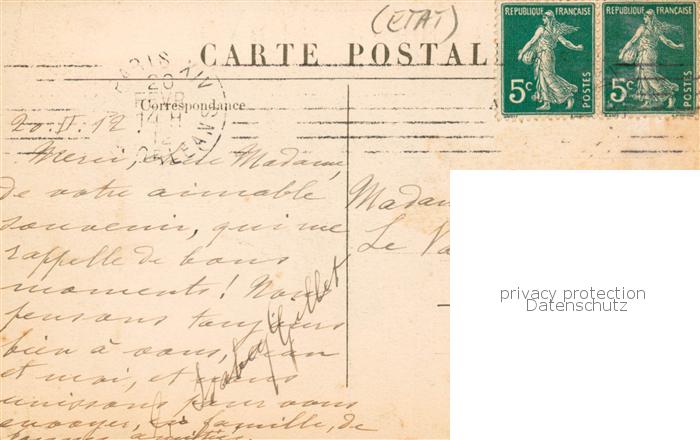 (ETAT)
CARTE POSTAL
RÉPUBLIQUE FRANÇAISE
5c
POSTES
RÉPUBLIQUE FRANÇAISE
5c
POSTES
PARIS XIV
20
14 H
Correspondance
A
20. II. 12
Merci, Madame,
de votre aimable
souvenir, qui me
rappelle de bons
moments! Nous
pensons toujours
bien à vous, Jean
et moi, et nous
unissons pour vous
envoyer, en famille, de
bonnes amitiés.
Gillet
Madam
Le Va
privacy protection
Datenschutz